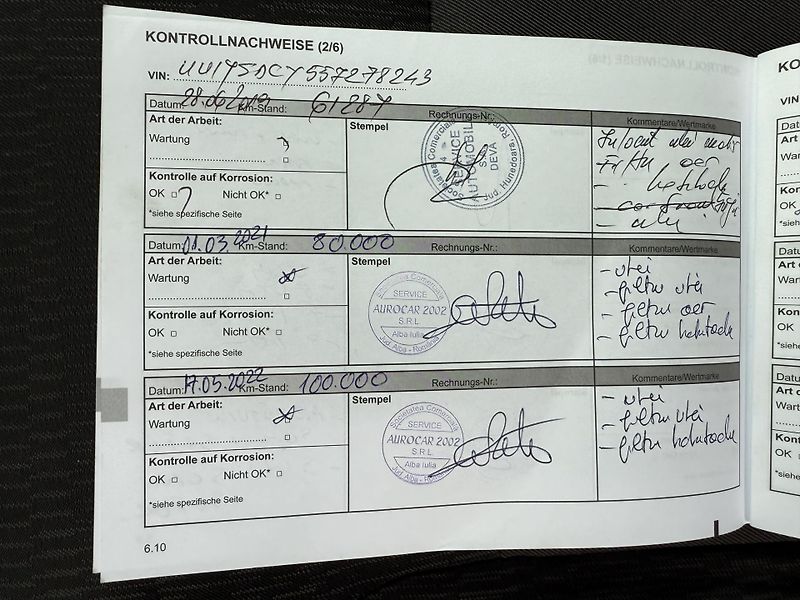 KONTROLLNACHWEISE (2/6)
VIN: UU1YSDCY557278243
Datum: 28.06.2019 Km-Stand: 61284 Rechnungs-Nr.:
Art der Arbeit:
Stempel
Kommentare/Wertmarke
Wartung
Kontrolle auf Korrosion:
OK Nicht OK*
*siehe spezifische Seite
Societatea Comerciala
SERVICE
AUTOMOBILE
DEVA
Jud. Hunedoara
ulei
Datum: 01.03.2021 Km-Stand: 80.000 Rechnungs-Nr.:
Art der Arbeit:
Stempel
Kommentare/Wertmarke
Wartung
Kontrolle auf Korrosion:
OK Nicht OK*
*siehe spezifische Seite
Societatea Comerciala
SERVICE
AUROCAR 2002
S.R.L
Alba Iulia
Jud. Alba - România
- ulei
- filtru ulei
- filtru aer
- filtru habitaclu
Datum: 17.05.2022 Km-Stand: 100.000 Rechnungs-Nr.:
Art der Arbeit:
Stempel
Kommentare/Wertmarke
Wartung
Kontrolle auf Korrosion:
OK Nicht OK*
*siehe spezifische Seite
Societatea Comerciala
SERVICE
AUROCAR 2002
S.R.L
Alba Iulia
Jud. Alba - România
- ulei
- filtru ulei
- filtru habitaclu
6.10
KO
VIN
Datu
Art
Wart
Kon
OK
*sieh
Datu
Art
War
Kor
OK
*sie
Datu
Art
Wa
Ko
OK
*si